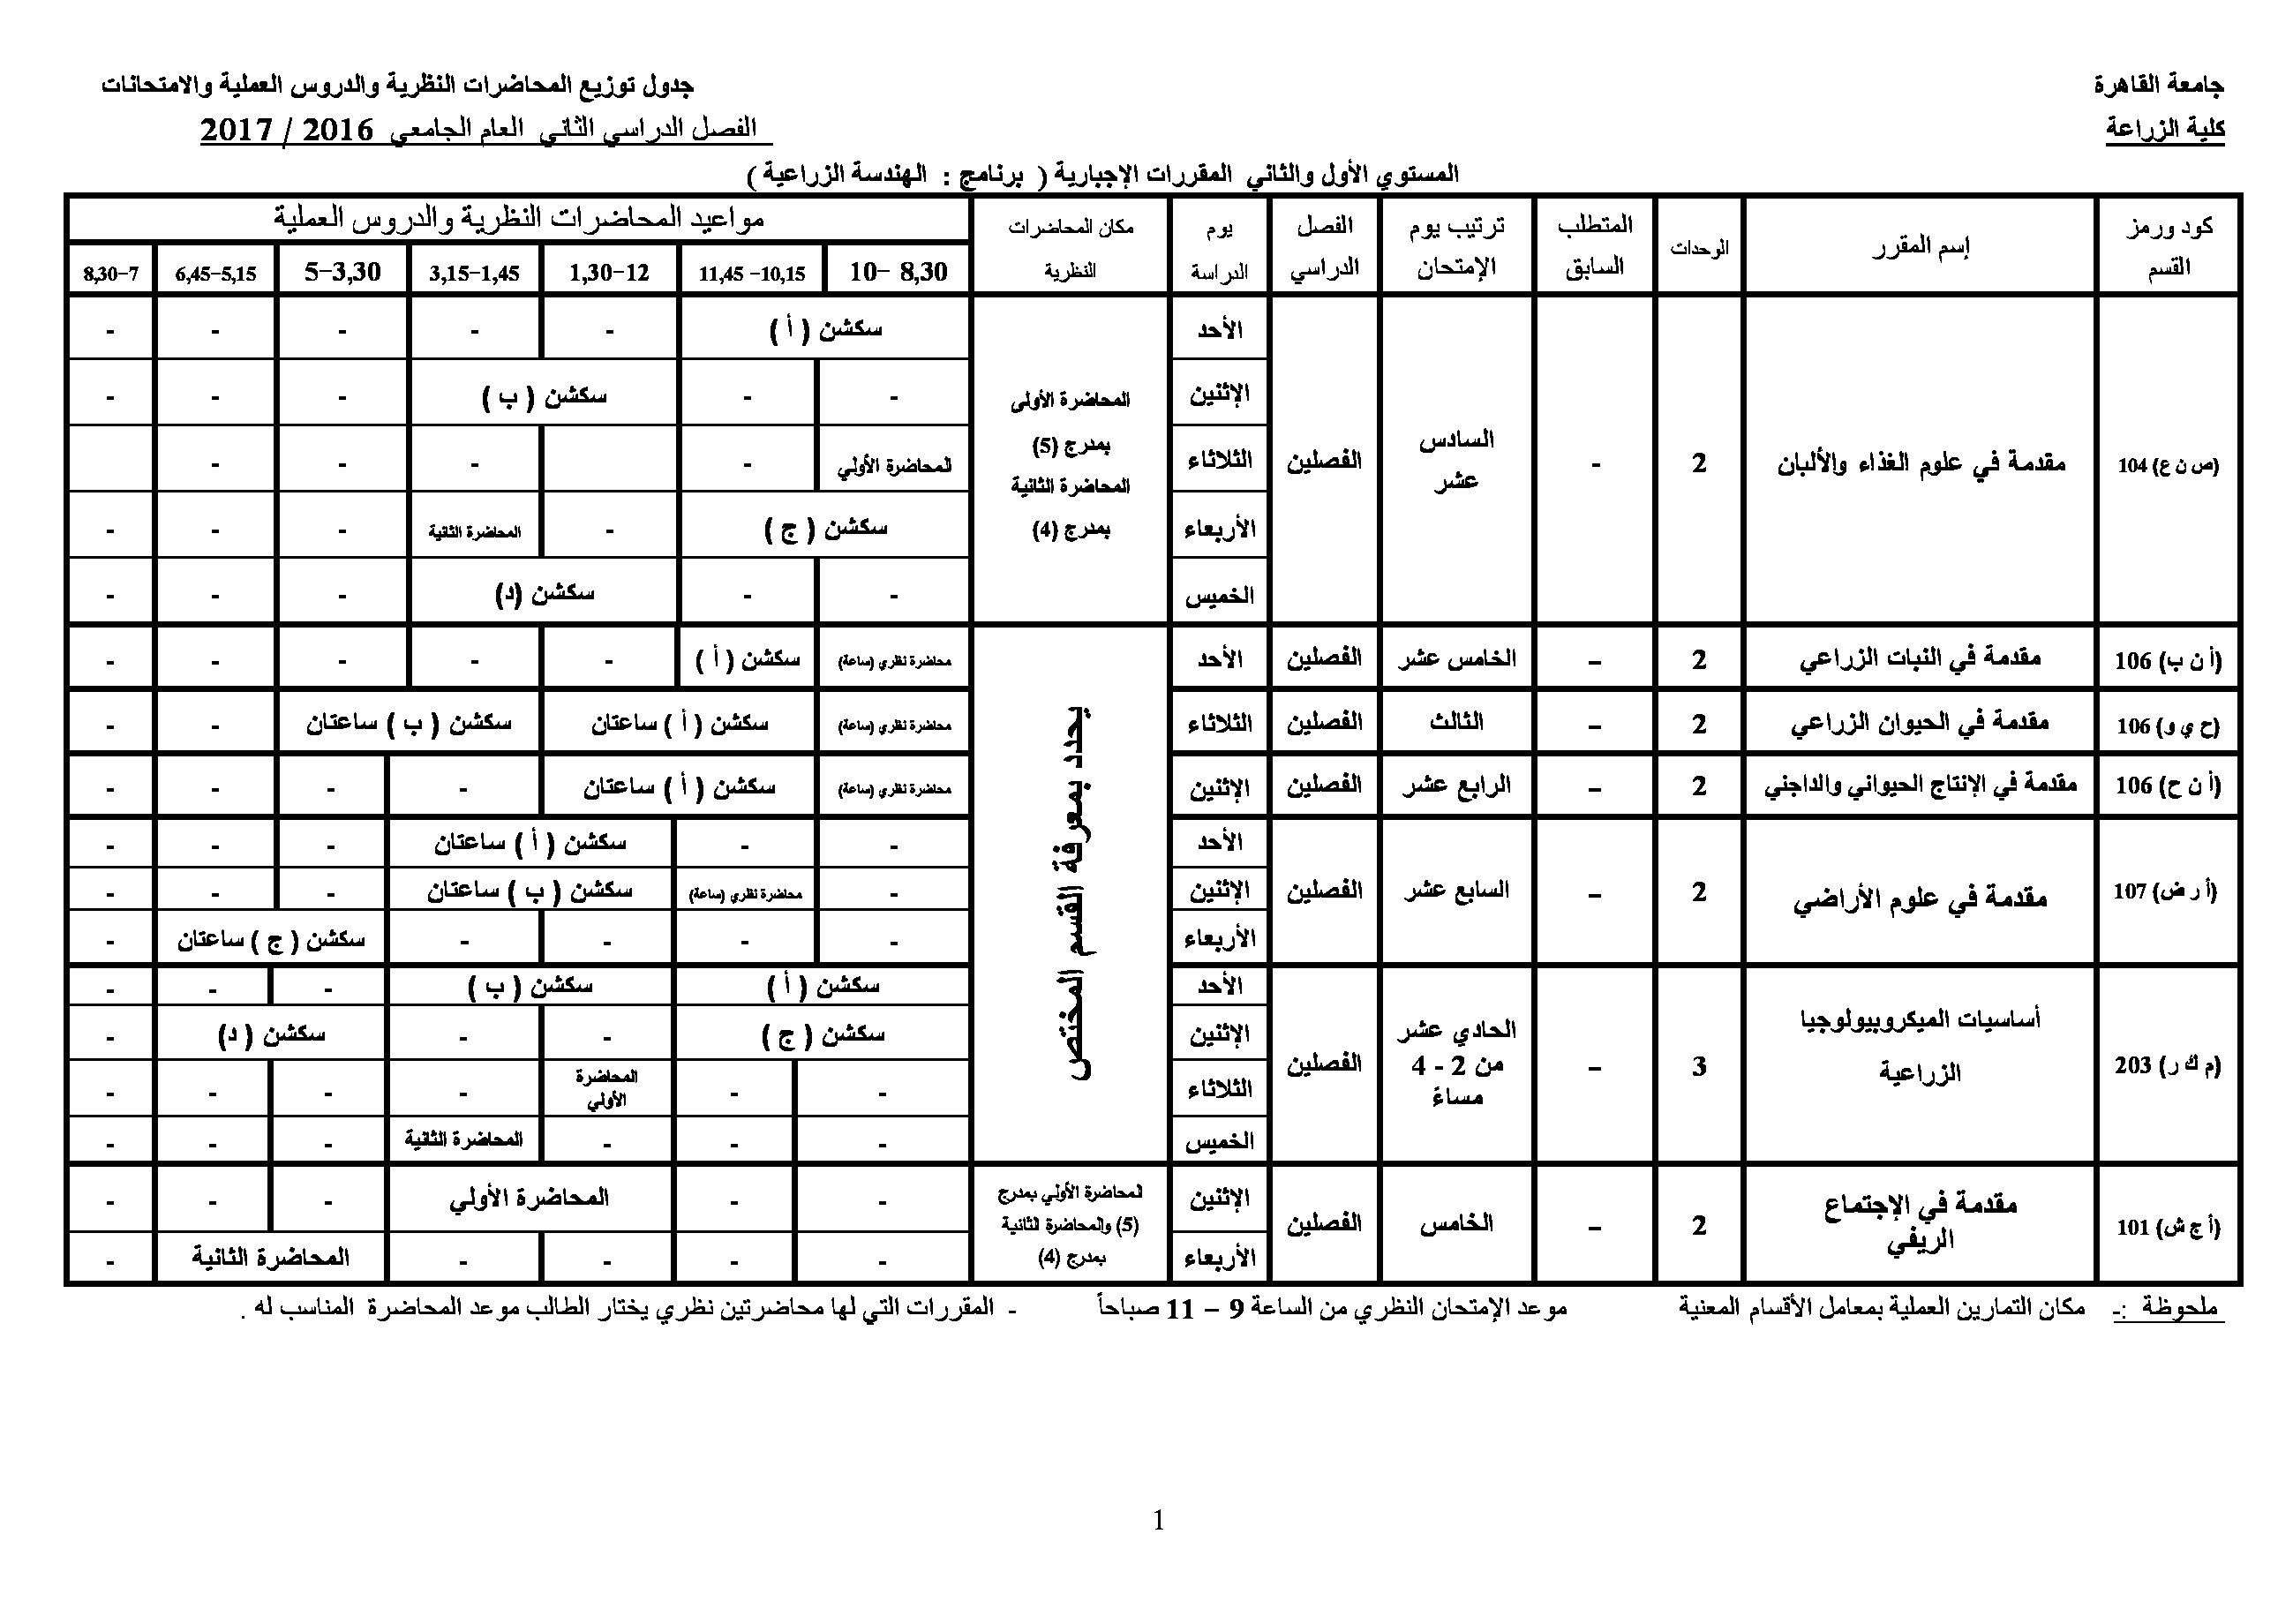 جامعة القاهرة
جدول توزيع المحاضرات النظرية والدروس العملية والامتحانات
كلية الزراعة
الفصل الدراسي الثاني العام الجامعي 2016 / 2017
المستوي الأول والثاني المقررات الإجبارية ( برنامج : الهندسة الزراعية )
كود ورمز القسم | إسم المقرر | الوحدات | المتطلب السابق | ترتيب يوم الإمتحان | الفصل الدراسي | يوم الدراسة | مكان المحاضرات النظرية | مواعيد المحاضرات النظرية والدروس العملية
8,30 -10 | 10,15- 11,45 | 12-1,30 | 1,45-3,15 | 3,30-5 | 5,15-6,45 | 7-8,30
(ص ن ع) 104 | مقدمة في علوم الغذاء والألبان | 2 | - | السادس عشر | الفصلين | المحاضرة الأولى بمدرج (5) المحاضرة الثانية بمدرج (4)
الأحد | سكشن ( أ ) | - | - | - | - | -
الإثنين | - | - | سكشن ( ب ) | - | - | -
الثلاثاء | المحاضرة الأولي | - | - | - | -
الأربعاء | سكشن ( ج ) | - | المحاضرة الثانية | - | - | -
الخميس | - | - | سكشن (د) | - | - | -
(أ ن ب) 106 | مقدمة في النبات الزراعي | 2 | – | الخامس عشر | الفصلين | الأحد | يحدد بمعرفة القسم المختص | محاضرة نظري (ساعة) | سكشن ( أ ) | - | - | - | - | -
(ح ي و) 106 | مقدمة في الحيوان الزراعي | 2 | – | الثالث | الفصلين | الثلاثاء | محاضرة نظري (ساعة) | سكشن ( أ ) ساعتان | سكشن ( ب ) ساعتان | - | -
(أ ن ح) 106 | مقدمة في الإنتاج الحيواني والداجني | 2 | – | الرابع عشر | الفصلين | الإثنين | محاضرة نظري (ساعة) | سكشن ( أ ) ساعتان | - | - | - | -
(أ ر ض) 107 | مقدمة في علوم الأراضي | 2 | – | السابع عشر | الفصلين
الأحد | - | - | سكشن ( أ ) ساعتان | - | - | -
الإثنين | - | محاضرة نظري (ساعة) | سكشن ( ب ) ساعتان | - | - | -
الأربعاء | - | - | - | - | سكشن ( ج ) ساعتان | -
(م ك ر) 203 | أساسيات الميكروبيولوجيا الزراعية | 3 | – | الحادي عشر من 2 - 4 مساءً | الفصلين
الأحد | سكشن ( أ ) | سكشن ( ب ) | - | - | -
الإثنين | سكشن ( ج ) | - | - | سكشن ( د) | -
الثلاثاء | - | - | المحاضرة الأولي | - | - | - | -
الخميس | - | - | - | المحاضرة الثانية | - | - | -
(أ ج ش) 101 | مقدمة في الإجتماع الريفي | 2 | – | الخامس | الفصلين | المحاضرة الأولي بمدرج (5) والمحاضرة الثانية بمدرج (4)
الإثنين | - | - | المحاضرة الأولي | - | - | -
الأربعاء | - | - | - | - | المحاضرة الثانية | -
ملحوظة :- مكان التمارين العملية بمعامل الأقسام المعنية موعد الإمتحان النظري من الساعة 9 – 11 صباحاً - المقررات التي لها محاضرتين نظري يختار الطالب موعد المحاضرة المناسب له .
1